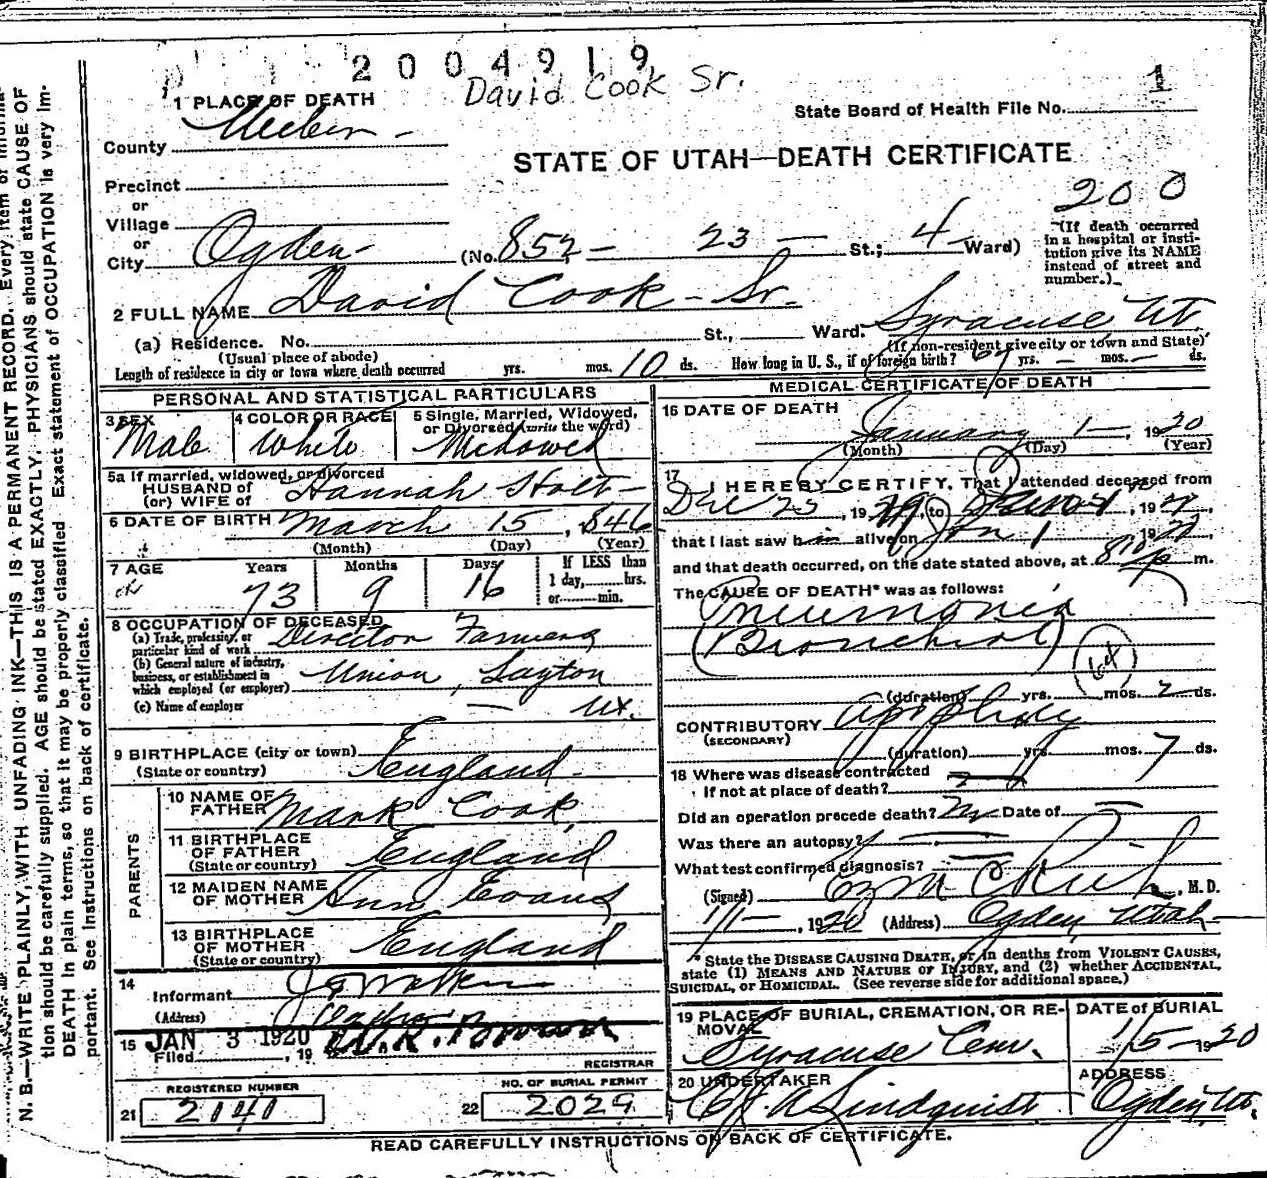 N. B.—WRITE PLAINLY, WITH UNFADING INK—THIS IS A PERMANENT RECORD. Every item of informa-
tion should be carefully supplied. AGE should be stated EXACTLY. PHYSICIANS should state CAUSE OF
DEATH in plain terms, so that it may be properly classified. Exact statement of OCCUPATION is very im-
portant. See Instructions on back of certificate.
2004919
David Cook Sr.
1
1 PLACE OF DEATH
State Board of Health File No.
County Weber
STATE OF UTAH—DEATH CERTIFICATE
Precinct
200
or
Village
or
City Ogden (No. 852 - 23 - St.; 4 Ward)
(If death occurred in a hospital or insti-
tution give its NAME instead of street and number.)
2 FULL NAME David Cook - Sr.
(a) Residence. No. St., Ward. Syracuse Ut.
(Usual place of abode) (If non-resident give city or town and State)
Length of residence in city or town where death occurred yrs. mos. 10 ds. How long in U. S., if of foreign birth? yrs. - mos. - ds.
PERSONAL AND STATISTICAL PARTICULARS
3 SEX Male
4 COLOR OR RACE White
5 Single, Married, Widowed, or Divorced (write the word) Widowed
5a If married, widowed, or divorced
HUSBAND of
(or) WIFE of Hannah Holt
6 DATE OF BIRTH March 15, 1846
(Month) (Day) (Year)
7 AGE Years 73 Months 9 Days 16
If LESS than 1 day, hrs. or min.
8 OCCUPATION OF DECEASED
(a) Trade, profession, or particular kind of work Director Farmers
(b) General nature of industry, business, or establishment in which employed (or employer) Union, Layton
(c) Name of employer - Ut.
9 BIRTHPLACE (city or town)
(State or country) England
PARENTS
10 NAME OF FATHER Mark Cook
11 BIRTHPLACE OF FATHER (State or country) England
12 MAIDEN NAME OF MOTHER Ann Evans
13 BIRTHPLACE OF MOTHER (State or country) England
14
Informant
(Address)
15 JAN 3 1920
Filed , 19
REGISTRAR
REGISTERED NUMBER
21 2141
NO. OF BURIAL PERMIT
22 2029
MEDICAL CERTIFICATE OF DEATH
16 DATE OF DEATH
January 1-, 1920
(Month) (Day) (Year)
17
I HEREBY CERTIFY, That I attended deceased from
Dec 25, 19 to , 19
that I last saw him alive on Jan 1 1920,
and that death occurred, on the date stated above, at m.
The CAUSE OF DEATH* was as follows:
Pneumonia
(Bronchial)
(duration) yrs. mos. 7 ds.
CONTRIBUTORY
(SECONDARY)
(duration) yrs. mos. 7 ds.
18 Where was disease contracted
If not at place of death?
Did an operation precede death? No Date of
Was there an autopsy?
What test confirmed diagnosis?
(Signed) , M. D.
1/1-, 1920 (Address) Ogden, Utah
* State the DISEASE CAUSING DEATH, or in deaths from VIOLENT CAUSES,
state (1) MEANS AND NATURE OF INJURY, and (2) whether ACCIDENTAL,
SUICIDAL, or HOMICIDAL. (See reverse side for additional space.)
19 PLACE OF BURIAL, CREMATION, OR RE-
MOVAL
Syracuse Cem.
DATE of BURIAL
1/5-1920
20 UNDERTAKER
Lindquist
ADDRESS
Ogden, Ut.
READ CAREFULLY INSTRUCTIONS ON BACK OF CERTIFICATE.